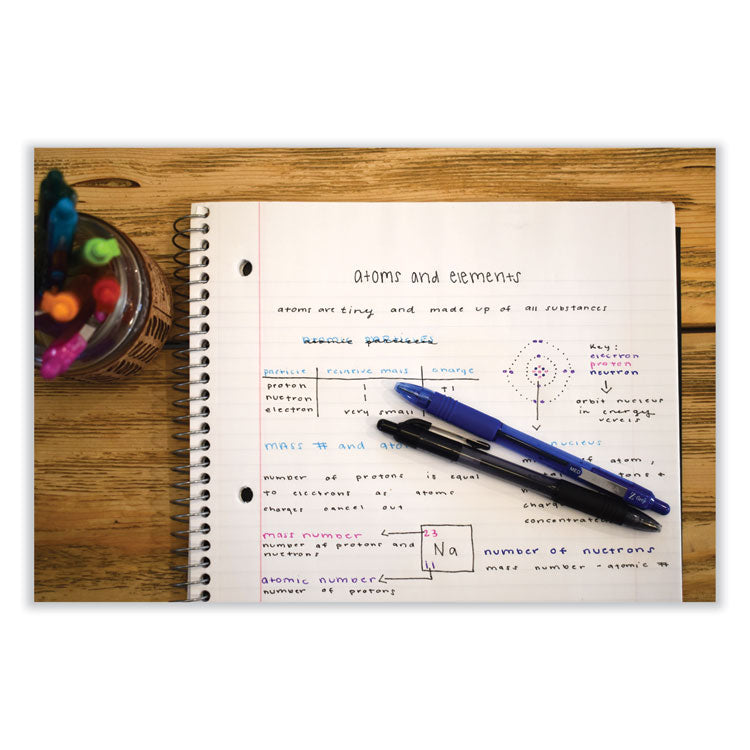 atoms and elements
atoms are tiny and made up of all substances
atomic particles
particle relative mass charge
proton 1 +1
nuetron 1
electron very small
Key:
electron
proton
neutron
orbit nucleus
in energy
vevels
mass # and
nucleus
of atom,
number of protons is equal
to electrons as atoms
charges cancel out
concentrated
mass number
number of protons and
nuetrons
atomic number
number of protons
23
Na
11
number of nuetrons
mass number - atomic #
MED
Z-Grip